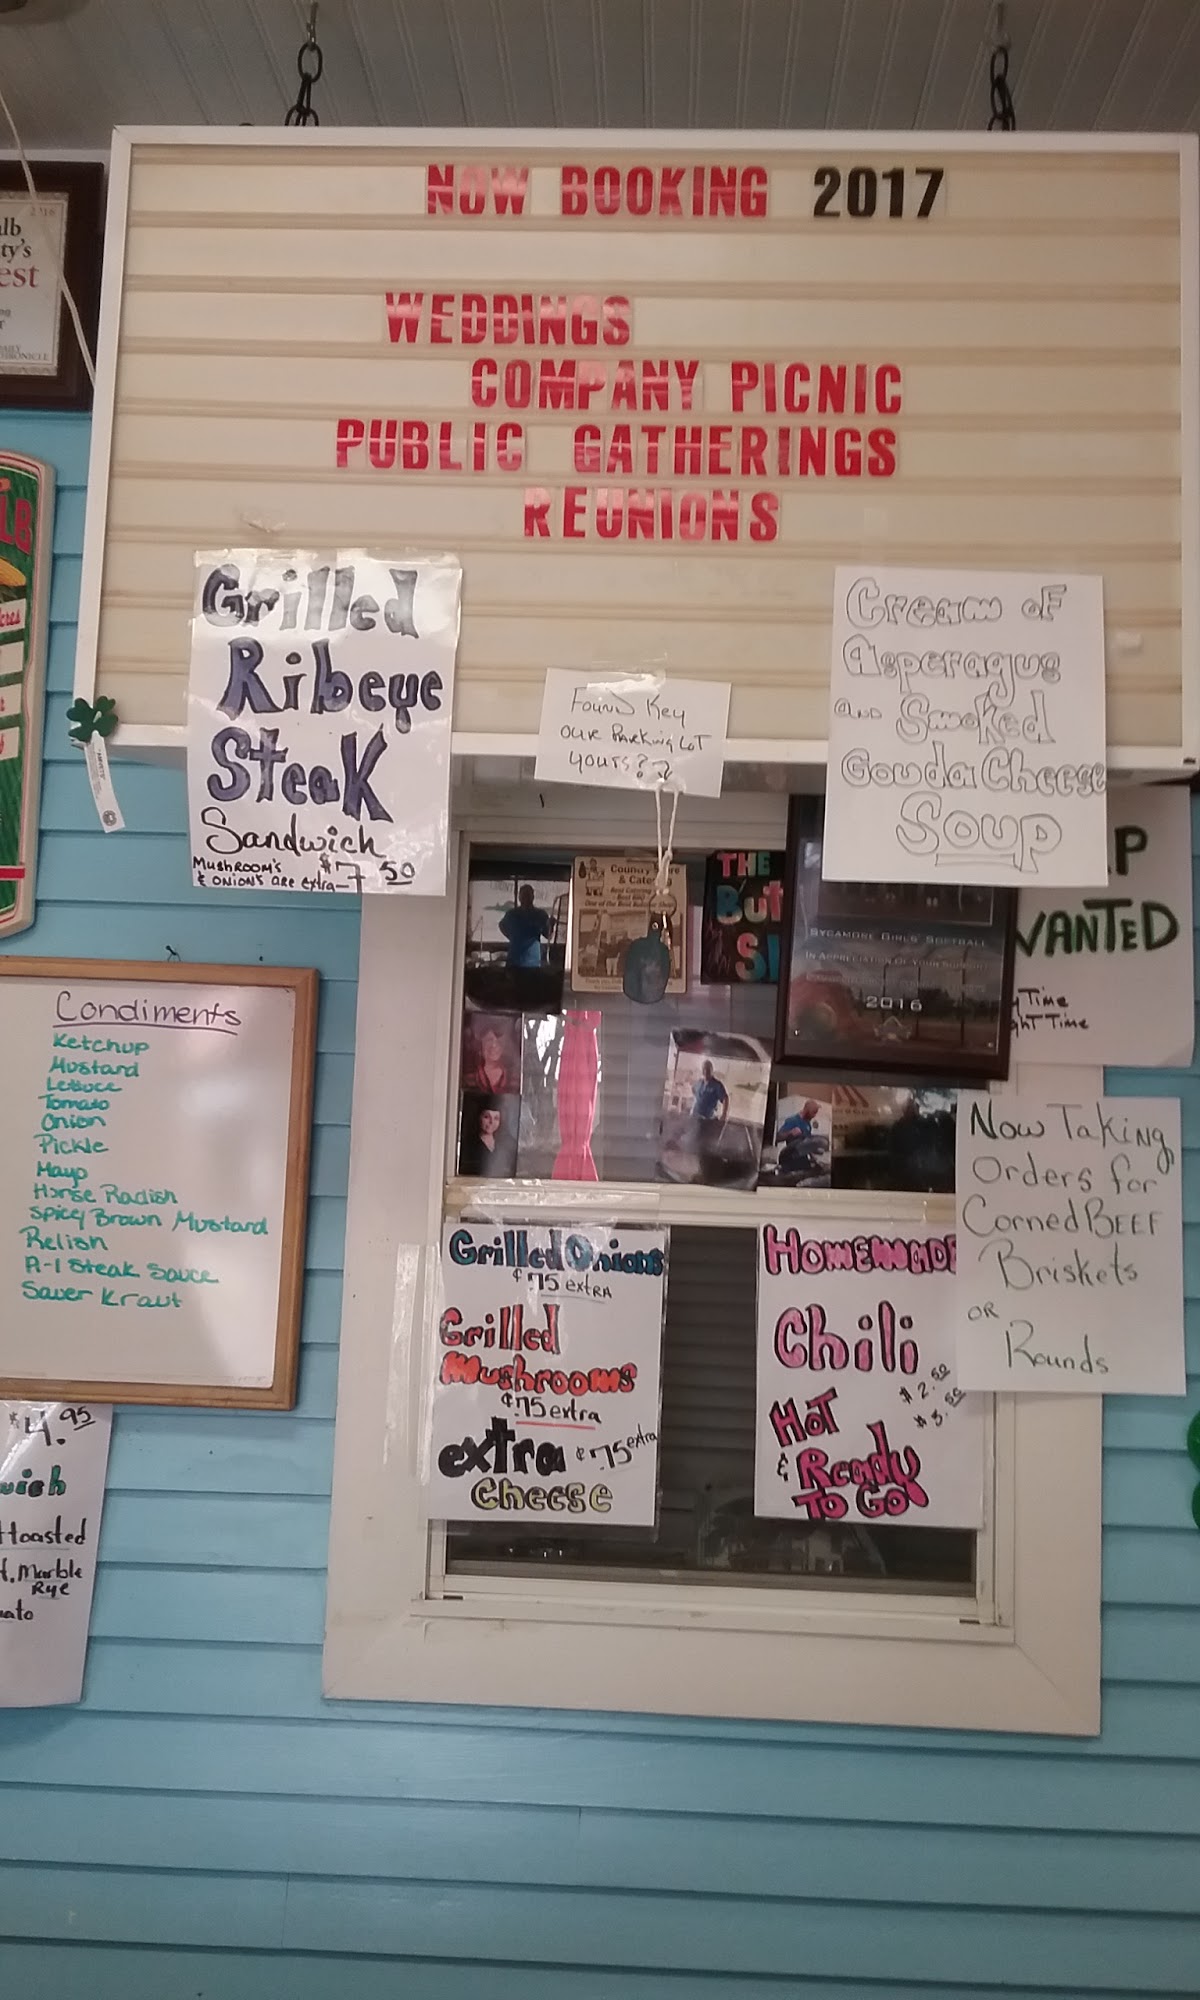 NOW BOOKING 2017
WEDDINGS
COMPANY PICNIC
PUBLIC GATHERINGS
REUNIONS
2016
est
CHRONICLE
LB
Grilled
Ribeye
Steak
Sandwich
Mushroom's $7.50
& onions are extra—
Found Key
our Parking Lot
yours??
Cream of
Asperagus
and Smoked
Gouda Cheese
Soup
P
WANTED
Time
ght Time
THE
But
S
SYCAMORE GIRLS' SOFTBALL
IN APPRECIATION OF YOUR SUPPORT
2016
Condiments
Ketchup
Mustard
Lettuce
Tomato
Onion
Pickle
Mayo
Horse Radish
Spicy Brown Mustard
Relish
A-1 Steak Sauce
Sauer Kraut
Now Taking
Orders for
Corned BEEF
Briskets
OR
Rounds
Grilled Onions
¢75 extra
Grilled
Mushrooms
¢75 extra
extra ¢75 extra
Cheese
Homemade
Chili
Hot $2.50
& Ready
To Go
$4.95
wich
toasted
Marble
Rye
ato